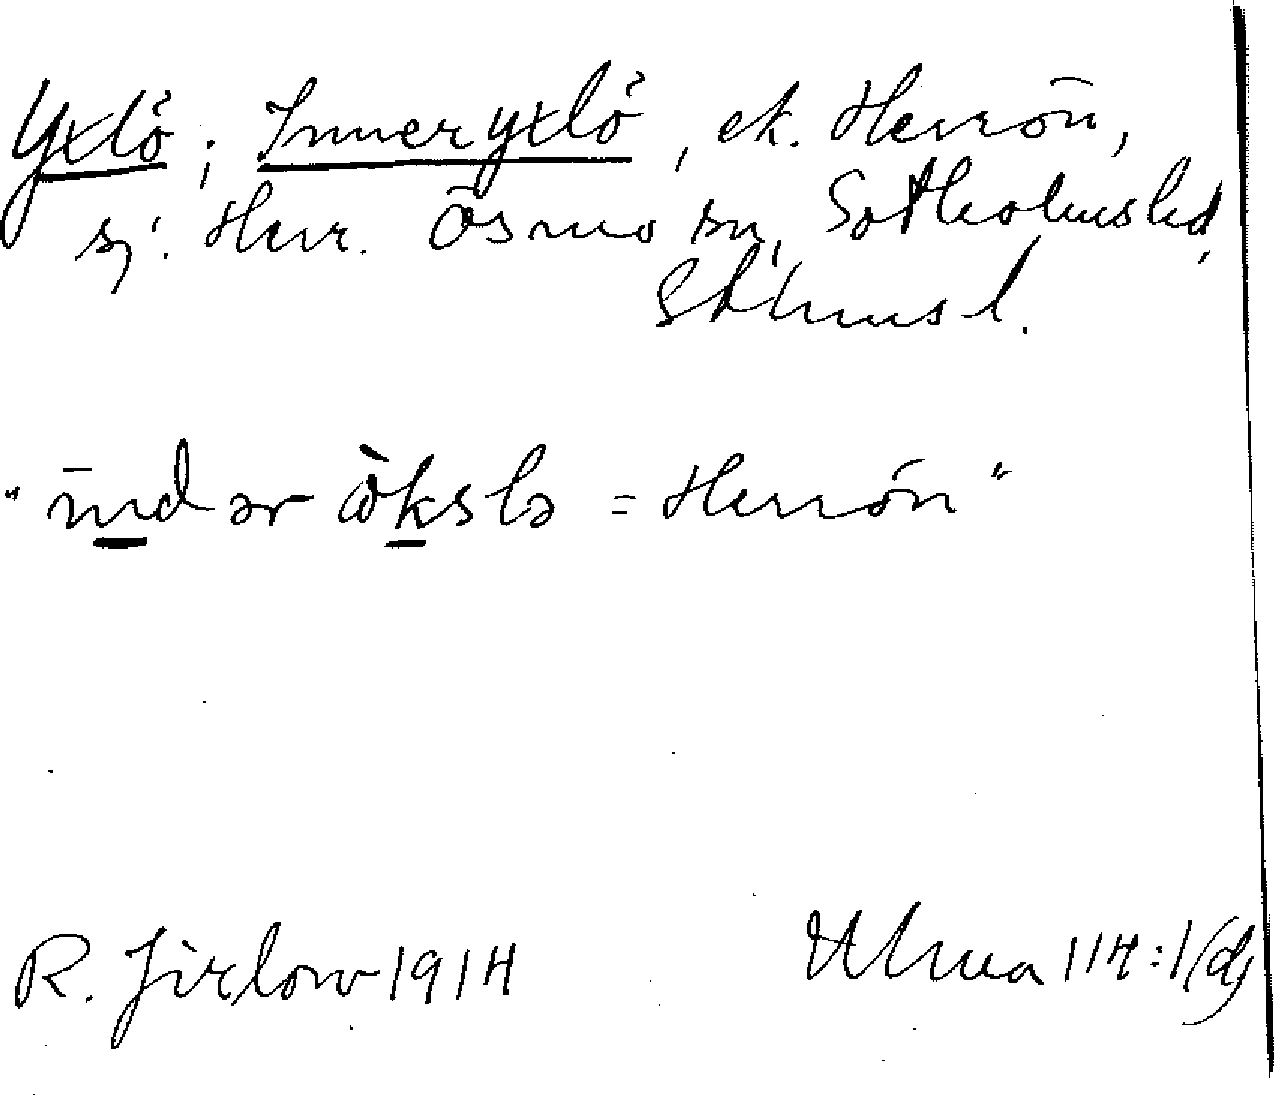 Yxlö; Inneryxlö, ek. Herrön,
sj. Herr. Ösmo sn, Sotholms hd,
Sthms l.
"īndər ò̀kslə = Herrön"
R. Jirlow 1914
Ulma 114:1(d)